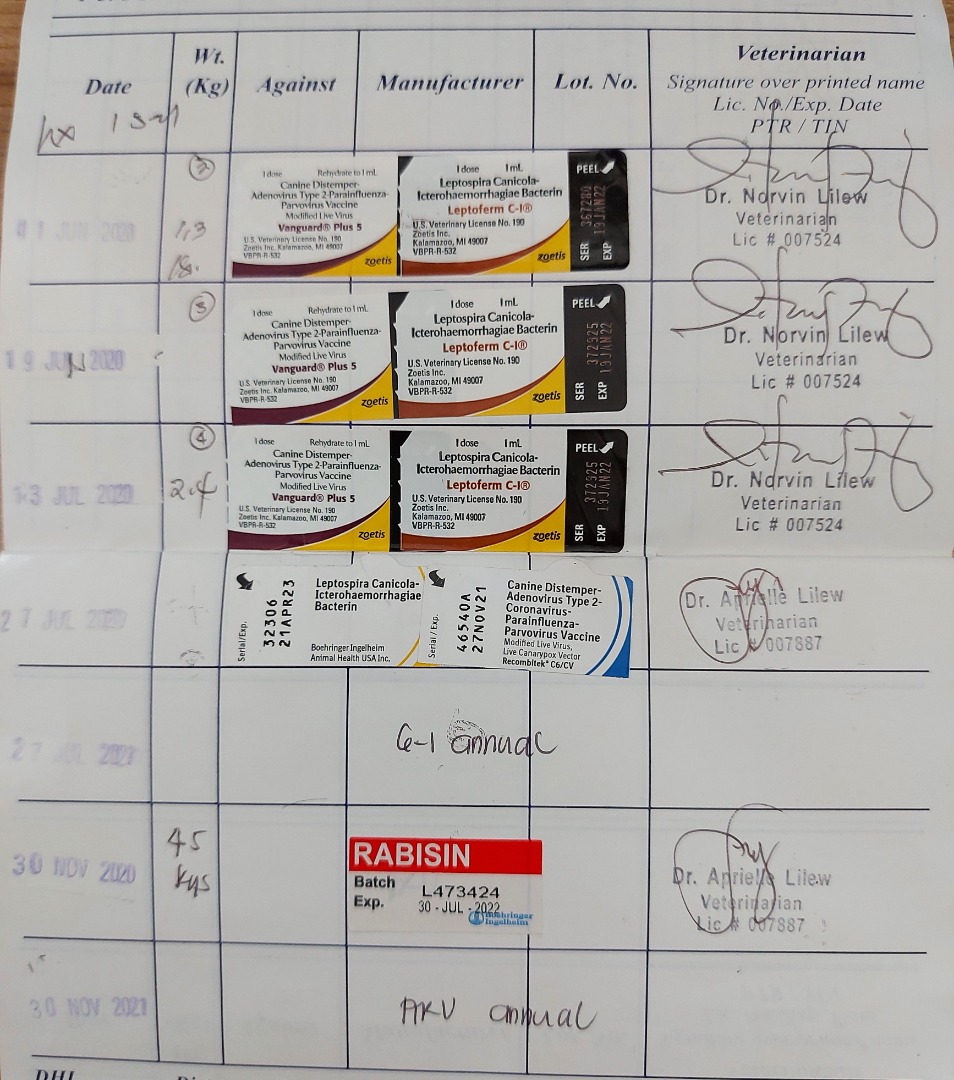 Date
Wt.
(Kg)
Against
Manufacturer
Lot. No.
Veterinarian
Signature over printed name
Lic. No./Exp. Date
PTR / TIN
1 JUN 2020
②
1.3
1 dose Rehydrate to 1 mL
Canine Distemper-
Adenovirus Type 2-Parainfluenza-
Parvovirus Vaccine
Modified Live Virus
Vanguard® Plus 5
U.S. Veterinary License No. 190
Zoetis Inc. Kalamazoo, MI 49007
VBPR-R-532
zoetis
1 dose 1 mL
Leptospira Canicola-
Icterohaemorrhagiae Bacterin
Leptoferm C-I®
U.S. Veterinary License No. 190
Zoetis Inc.
Kalamazoo, MI 49007
VBPR-R-532
zoetis
PEEL
SER 367280
EXP 19JAN22
Dr. Norvin Lilew
Veterinarian
Lic # 007524
19 JUN 2020
③
1 dose Rehydrate to 1 mL
Canine Distemper-
Adenovirus Type 2-Parainfluenza-
Parvovirus Vaccine
Modified Live Virus
Vanguard® Plus 5
U.S. Veterinary License No. 190
Zoetis Inc. Kalamazoo, MI 49007
VBPR-R-532
zoetis
1 dose 1 mL
Leptospira Canicola-
Icterohaemorrhagiae Bacterin
Leptoferm C-I®
U.S. Veterinary License No. 190
Zoetis Inc.
Kalamazoo, MI 49007
VBPR-R-532
zoetis
PEEL
SER 372325
EXP 19JAN22
Dr. Norvin Lilew
Veterinarian
Lic # 007524
13 JUL 2020
④
2.4
1 dose Rehydrate to 1 mL
Canine Distemper-
Adenovirus Type 2-Parainfluenza-
Parvovirus Vaccine
Modified Live Virus
Vanguard® Plus 5
U.S. Veterinary License No. 190
Zoetis Inc. Kalamazoo, MI 49007
VBPR-R-532
zoetis
1 dose 1 mL
Leptospira Canicola-
Icterohaemorrhagiae Bacterin
Leptoferm C-I®
U.S. Veterinary License No. 190
Zoetis Inc.
Kalamazoo, MI 49007
VBPR-R-532
zoetis
PEEL
SER 372325
EXP 19JAN22
Dr. Norvin Lilew
Veterinarian
Lic # 007524
27 JUL 2020
Serial/Exp.
32306
21APR23
Leptospira Canicola-
Icterohaemorrhagiae
Bacterin
Boehringer Ingelheim
Animal Health USA Inc.
Serial / Exp.
46540A
27NOV21
Canine Distemper-
Adenovirus Type 2-
Coronavirus-
Parainfluenza-
Parvovirus Vaccine
Modified Live Virus,
Live Canarypox Vector
Recombitek® C6/CV
Dr. Aprielle Lilew
Veterinarian
Lic # 007887
27 JUL 2021
6-1 annual
30 NOV 2020
45
kgs
RABISIN
Batch L473424
Exp. 30 - JUL - 2022
Boehringer
Ingelheim
Dr. Aprielle Lilew
Veterinarian
Lic # 007887
30 NOV 2021
ARV annual